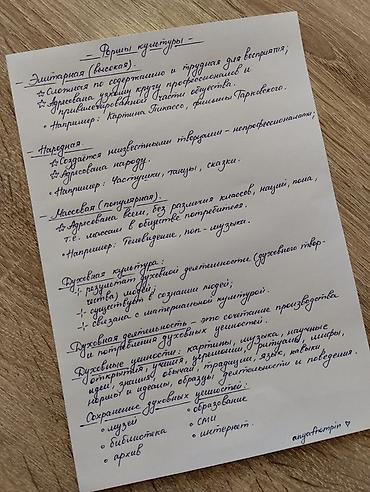 - Формы культуры -
- Элитарная (высокая).
☆ Сложная по содержанию и трудная для восприятия;
☆ Адресована узкому кругу профессионалов и
привилегированной части общества.
• Например: Картина Пикассо, фильмы Тарковского.
- Народная.
☆ Создаётся неизвестными творцами - непрофессионалами;
☆ Адресована народу.
• Например: Частушки, танцы, сказки.
- Массовая (популярная).
☆ Адресована всем, без различия классов, наций, пола,
т.е. массам в обществе потребителя.
• Например: Телевидение, поп-музыка.
Духовная культура:
-|- результат духовной деятельности (духовного твор-
чества) людей;
-|- существует в сознании людей;
-|- связана с материальной культурой.
Духовная деятельность - это сочетание производства
и потребления духовных ценностей.
Духовные ценности: картины, музыка, научные
открытия, учения, церемонии, ритуалы, мифы,
идеи, знания, обычаи, традиции, язык, навыки
нормы и идеалы, образцы деятельности и поведения.
Сохранение духовных ценностей:
• музей
• образование
• библиотека
• СМИ
• архив
• интернет.